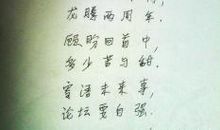 龙腾两周年,
顾盼回首中,
多少苦与甜,
寄语未来事,
论坛要自强.